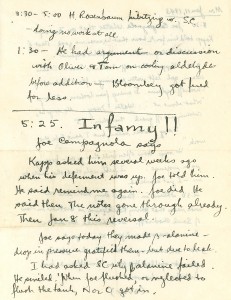 3:30 - 5:00 H Rosenbaum kibitzing w. SC
- doing no work at all.
1:30 - He had argument or discussion
with Oliver & Tom on cooling aldehyde
before addition - Bloomberg got fired
for less.
5:25. Infamy!!
Joe Campagnola says
Kapp asked him several weeks ago
when his deferment was up. Joe told him.
He said remind me again. Joe did. He
said then The notes gone through already.
Then Jan 8 this reversal.
Joe says today they made β-alanine -
drop in pressure gratified them - but due to leak.
I had asked SC why β alanine failed
He omitted when Joe flushed, or neglected to
flush the tank, No